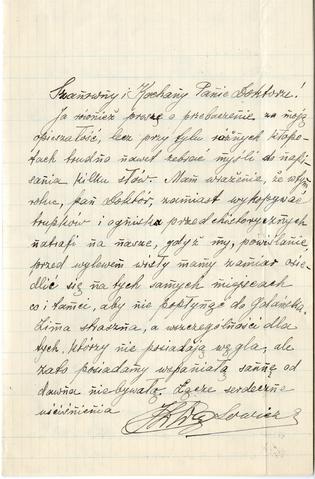 Szanowny i Kochany Panie Doktorze!
Ja również proszę o przebaczenie za moją
opieszałość, lecz przy tylu różnych kłopo-
tach trudno nawet zebrać myśli do napi-
sania kilku słów. Mam wrażenie, że w tym
roku, pan Doktór, zamiast wykopywać
trupków i ogniska przedhistorycznych
natrafi na nasze, gdyż my, powiślanie,
przed wylewem Wisły mamy zamiar osie-
dlić się na tych samych miejscach
co i tamci, aby nie popłynąć do Gdańska.
Zima straszna, a w szczególności dla
tych, którzy nie posiadają węgla, ale
zato posiadamy wspaniałą sannę od
dawna niebywałą. Łączę serdeczne
uściśnienia